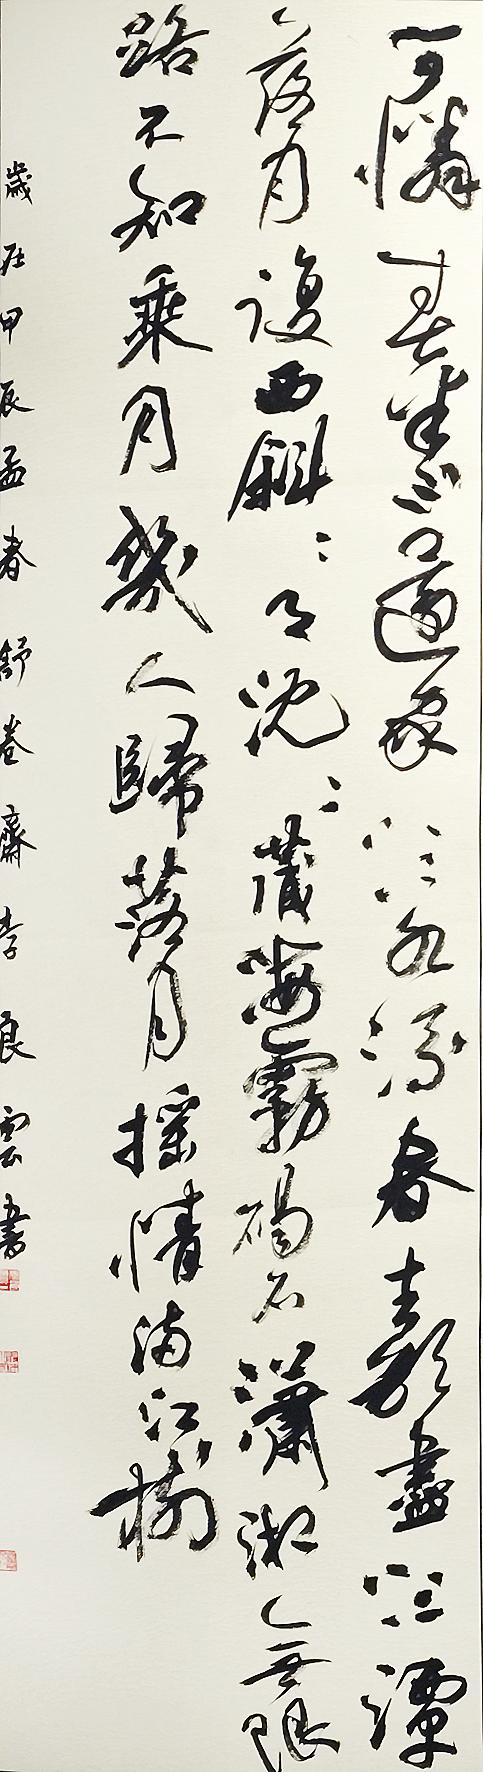 可憐春半不還家江水流春去欲盡江潭
落月復西斜〻月沈〻藏海霧碣石瀟湘無限
路不知乘月幾人歸落月搖情滿江樹
歲在甲辰孟春舒卷齋李良雲書